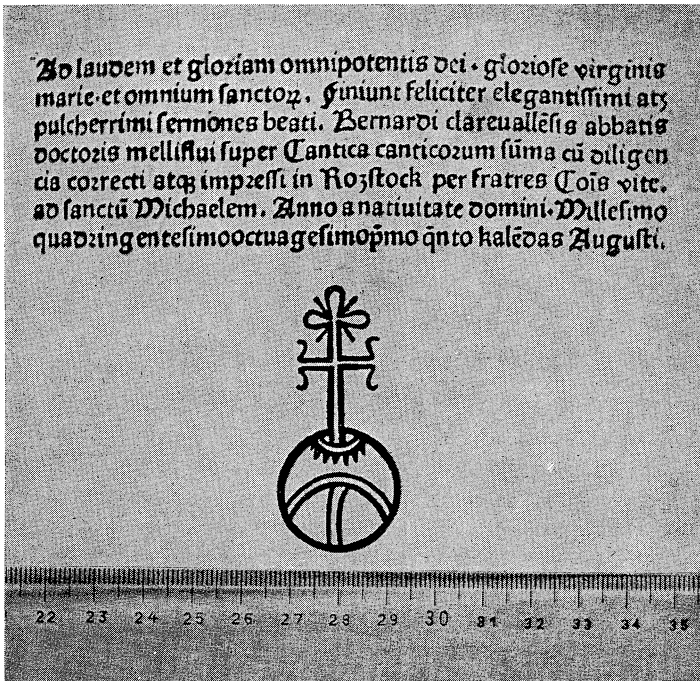 Ad laudem et gloꝛiam omnipotentis dei · gloꝛioſe virginis
marie·et omnium ſanctoꝝ. Finiunt feliciter elegantiſſimi atꝫ
pulcherrimi ſermones beati. Bernardi clareuallēſis abbatis
doctoꝛis melliflui ſuper Cantica canticoꝛum ſūma cū diligen
cia coꝛrecti atqꝫ impꝛeſſi in Roʒſtock per fratres Coīs vite.
ad ſanctū Michaelem. Anno a natiuitate domini·Milleſimo
quadꝛingenteſimooctuageſimop̄mo q̄nto kalēdas Auguſti.
22 23 24 25 26 27 28 29 30 31 32 33 34 35